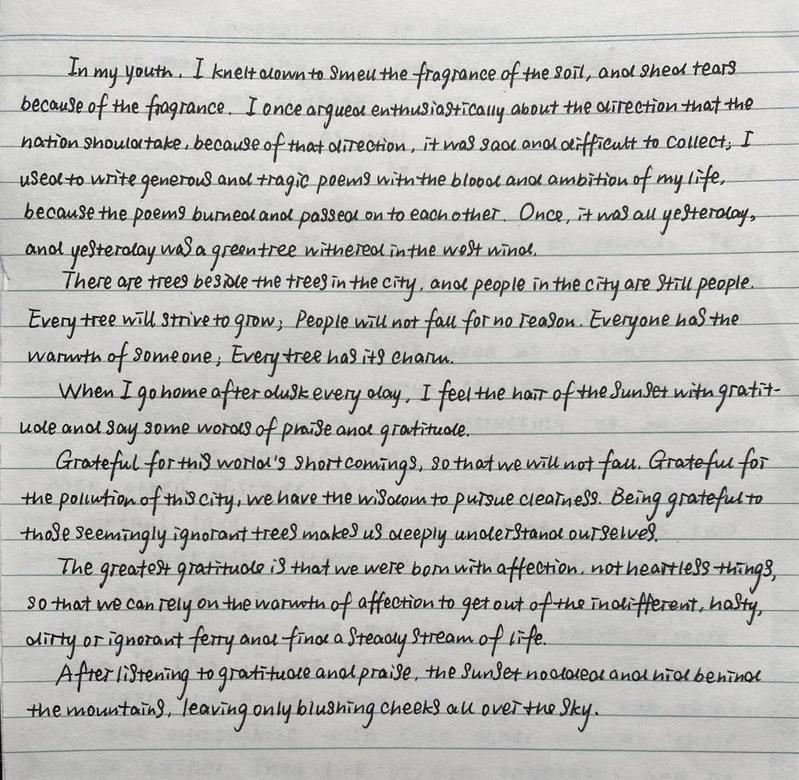 In my youth, I knelt down to smell the fragrance of the soil, and shed tears
because of the fragrance. I once argued enthusiastically about the direction that the
nation should take, because of that direction, it was sad and difficult to collect; I
used to write generous and tragic poems with the blood and ambition of my life,
because the poems burned and passed on to each other. Once, it was all yesterday,
and yesterday was a green tree withered in the west wind.
There are trees beside the trees in the city, and people in the city are still people.
Every tree will strive to grow; People will not fall for no reason. Everyone has the
warmth of someone; Every tree has its charm.
When I go home after dusk every day, I feel the hair of the sunset with gratit-
ude and say some words of praise and gratitude.
Grateful for this world's shortcomings, so that we will not fall. Grateful for
the pollution of this city, we have the wisdom to pursue clearness. Being grateful to
those seemingly ignorant trees makes us deeply understand ourselves.
The greatest gratitude is that we were born with affection, not heartless things,
so that we can rely on the warmth of affection to get out of the indifferent, hasty,
dirty or ignorant ferry and find a steady stream of life.
After listening to gratitude and praise, the sunset nodded and hid behind
the mountains, leaving only blushing cheeks all over the sky.